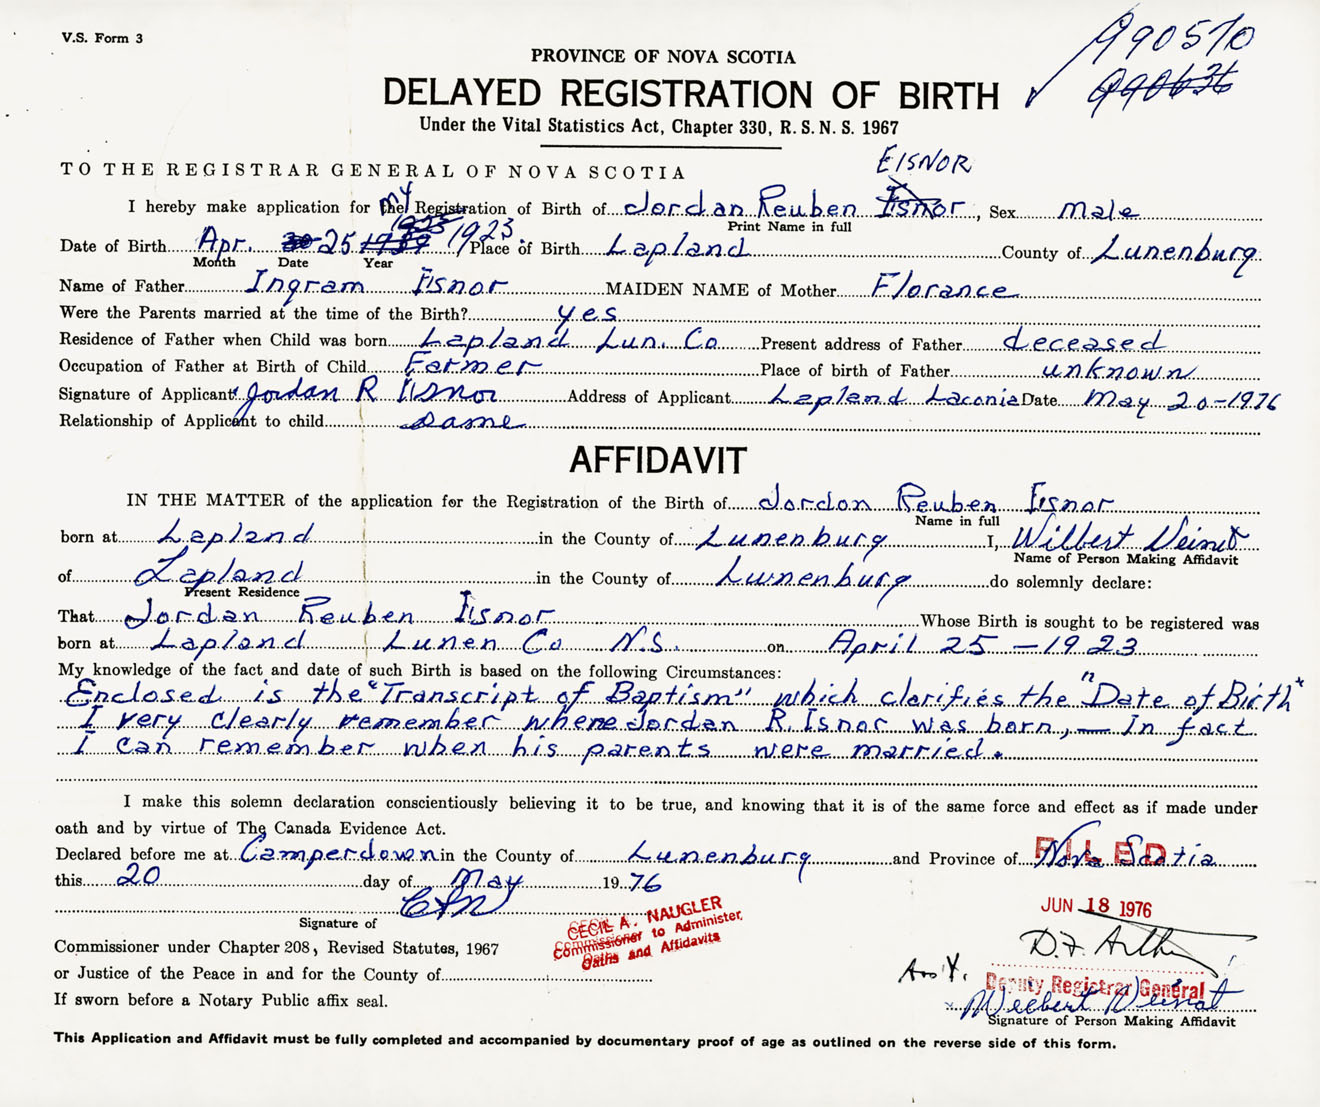 V.S. Form 3
990510
990636
PROVINCE OF NOVA SCOTIA
DELAYED REGISTRATION OF BIRTH
Under the Vital Statistics Act, Chapter 330, R. S. N. S. 1967
TO THE REGISTRAR GENERAL OF NOVA SCOTIA
EISNOR
I hereby make application for the my Registration of Birth of Jordan Reuben Isnor, Sex male
Print Name in full
1925
Date of Birth Apr. 30 25 1939 1923 Place of Birth Lapland County of Lunenburg
Month Date Year
Name of Father Ingram Isnor MAIDEN NAME of Mother Florance
Were the Parents married at the time of the Birth? yes
Residence of Father when Child was born Lapland Lun. Co Present address of Father deceased
Occupation of Father at Birth of Child Farmer Place of birth of Father unknown
Signature of Applicant Jordan R Isnor Address of Applicant Lapland Laconia Date May 20-1976
Relationship of Applicant to child same
AFFIDAVIT
IN THE MATTER of the application for the Registration of the Birth of Jordon Reuben Isnor
Name in full
born at Lapland in the County of Lunenburg I, Wilbert Veinot
Name of Person Making Affidavit
of Lapland in the County of Lunenburg do solemnly declare:
Present Residence
That Jordan Reuben Isnor Whose Birth is sought to be registered was
born at Lapland Lunen Co N.S. on April 25 - 1923
My knowledge of the fact and date of such Birth is based on the following Circumstances:
Enclosed is the "Transcript of Baptism" which clarifies the "Date of Birth"
I very clearly remember where Jordan R. Isnor was born, — In fact
I can remember when his parents were married.
I make this solemn declaration conscientiously believing it to be true, and knowing that it is of the same force and effect as if made under
oath and by virtue of The Canada Evidence Act.
Declared before me at Camperdown in the County of Lunenburg and Province of Nova Scotia
FILED
this 20 day of May 19 76
Signature of
CECIL A. NAUGLER
Commissioner to Administer
Oaths and Affidavits
JUN 18 1976
Commissioner under Chapter 208, Revised Statutes, 1967
or Justice of the Peace in and for the County of
Deputy Registrar General
If sworn before a Notary Public affix seal.
Wilbert Veinot
Signature of Person Making Affidavit
This Application and Affidavit must be fully completed and accompanied by documentary proof of age as outlined on the reverse side of this form.